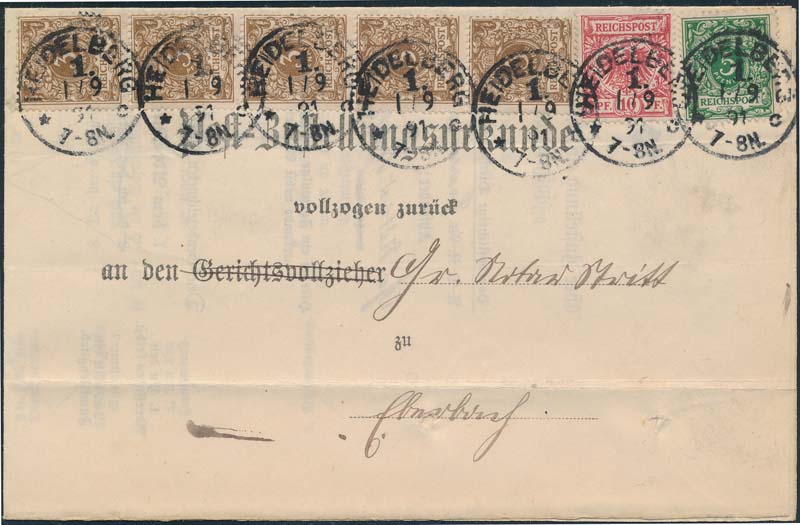 HEIDELBERG HEIDELBERG HEIDELBERG HEIDELBERG HEIDELBERG HEIDELBERG HEIDELBERG
REICHSPOST
PF. 10 PF.
REICHSPOST
1. 1. 1. 1. 1. 1. 1.
1/9 1/9 1/9 1/9 1/9 1/9 1/9
91 91 91 91 91 91 91
7-8N. 7-8N. 7-8N. 7-8N. 7-8N. 7-8N. 7-8N.
Post-Zustellungsurkunde
vollzogen zurück
an den Gerichtsvollzieher Gr. Notar Stritt
zu
Eberbach